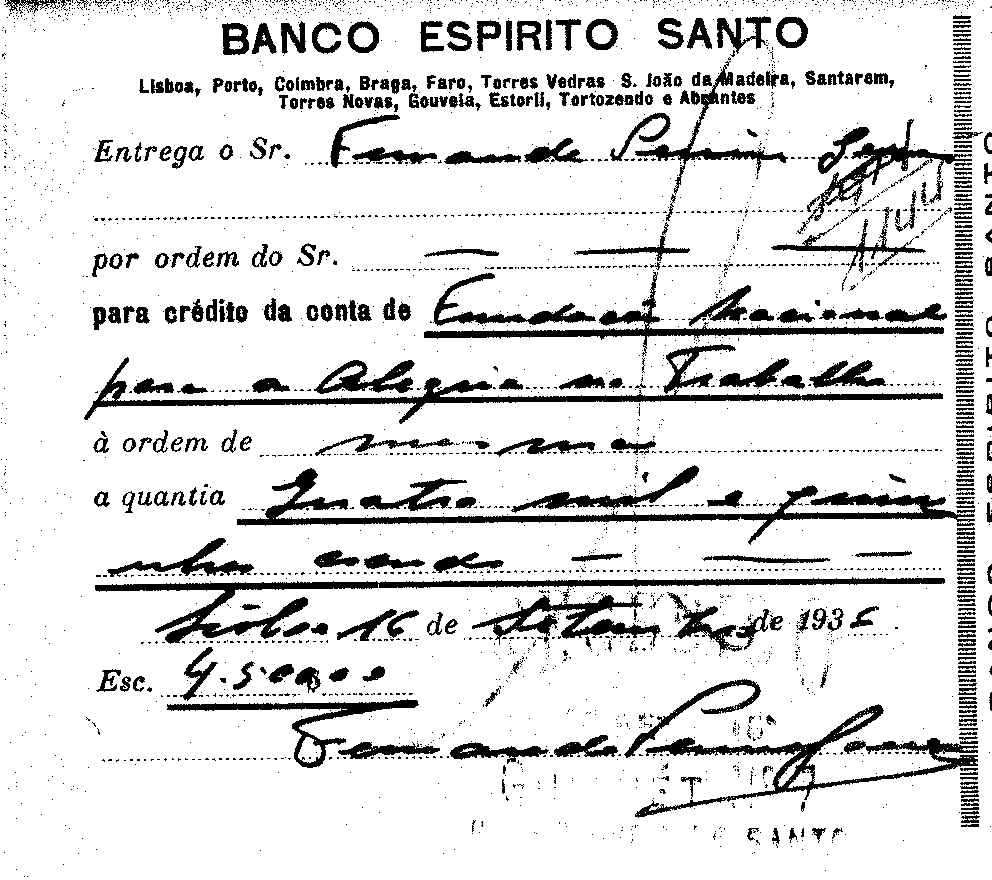 BANCO ESPIRITO SANTO
Lisboa, Porto, Coimbra, Braga, Faro, Torres Vedras S. João da Madeira, Santarem,
Torres Novas, Gouveia, Estoril, Tortozendo e Abrantes
Entrega o Sr. Fernando
por ordem do Sr. — — —
para crédito da conta de Fundação Nacional
para a Alegria no Trabalho
à ordem de mesma
a quantia Quatro mil e quin
nhentos escudos — — —
Lisboa 16 de Setembro de 1936
Esc. 4.500$00
Fernando
SANTO